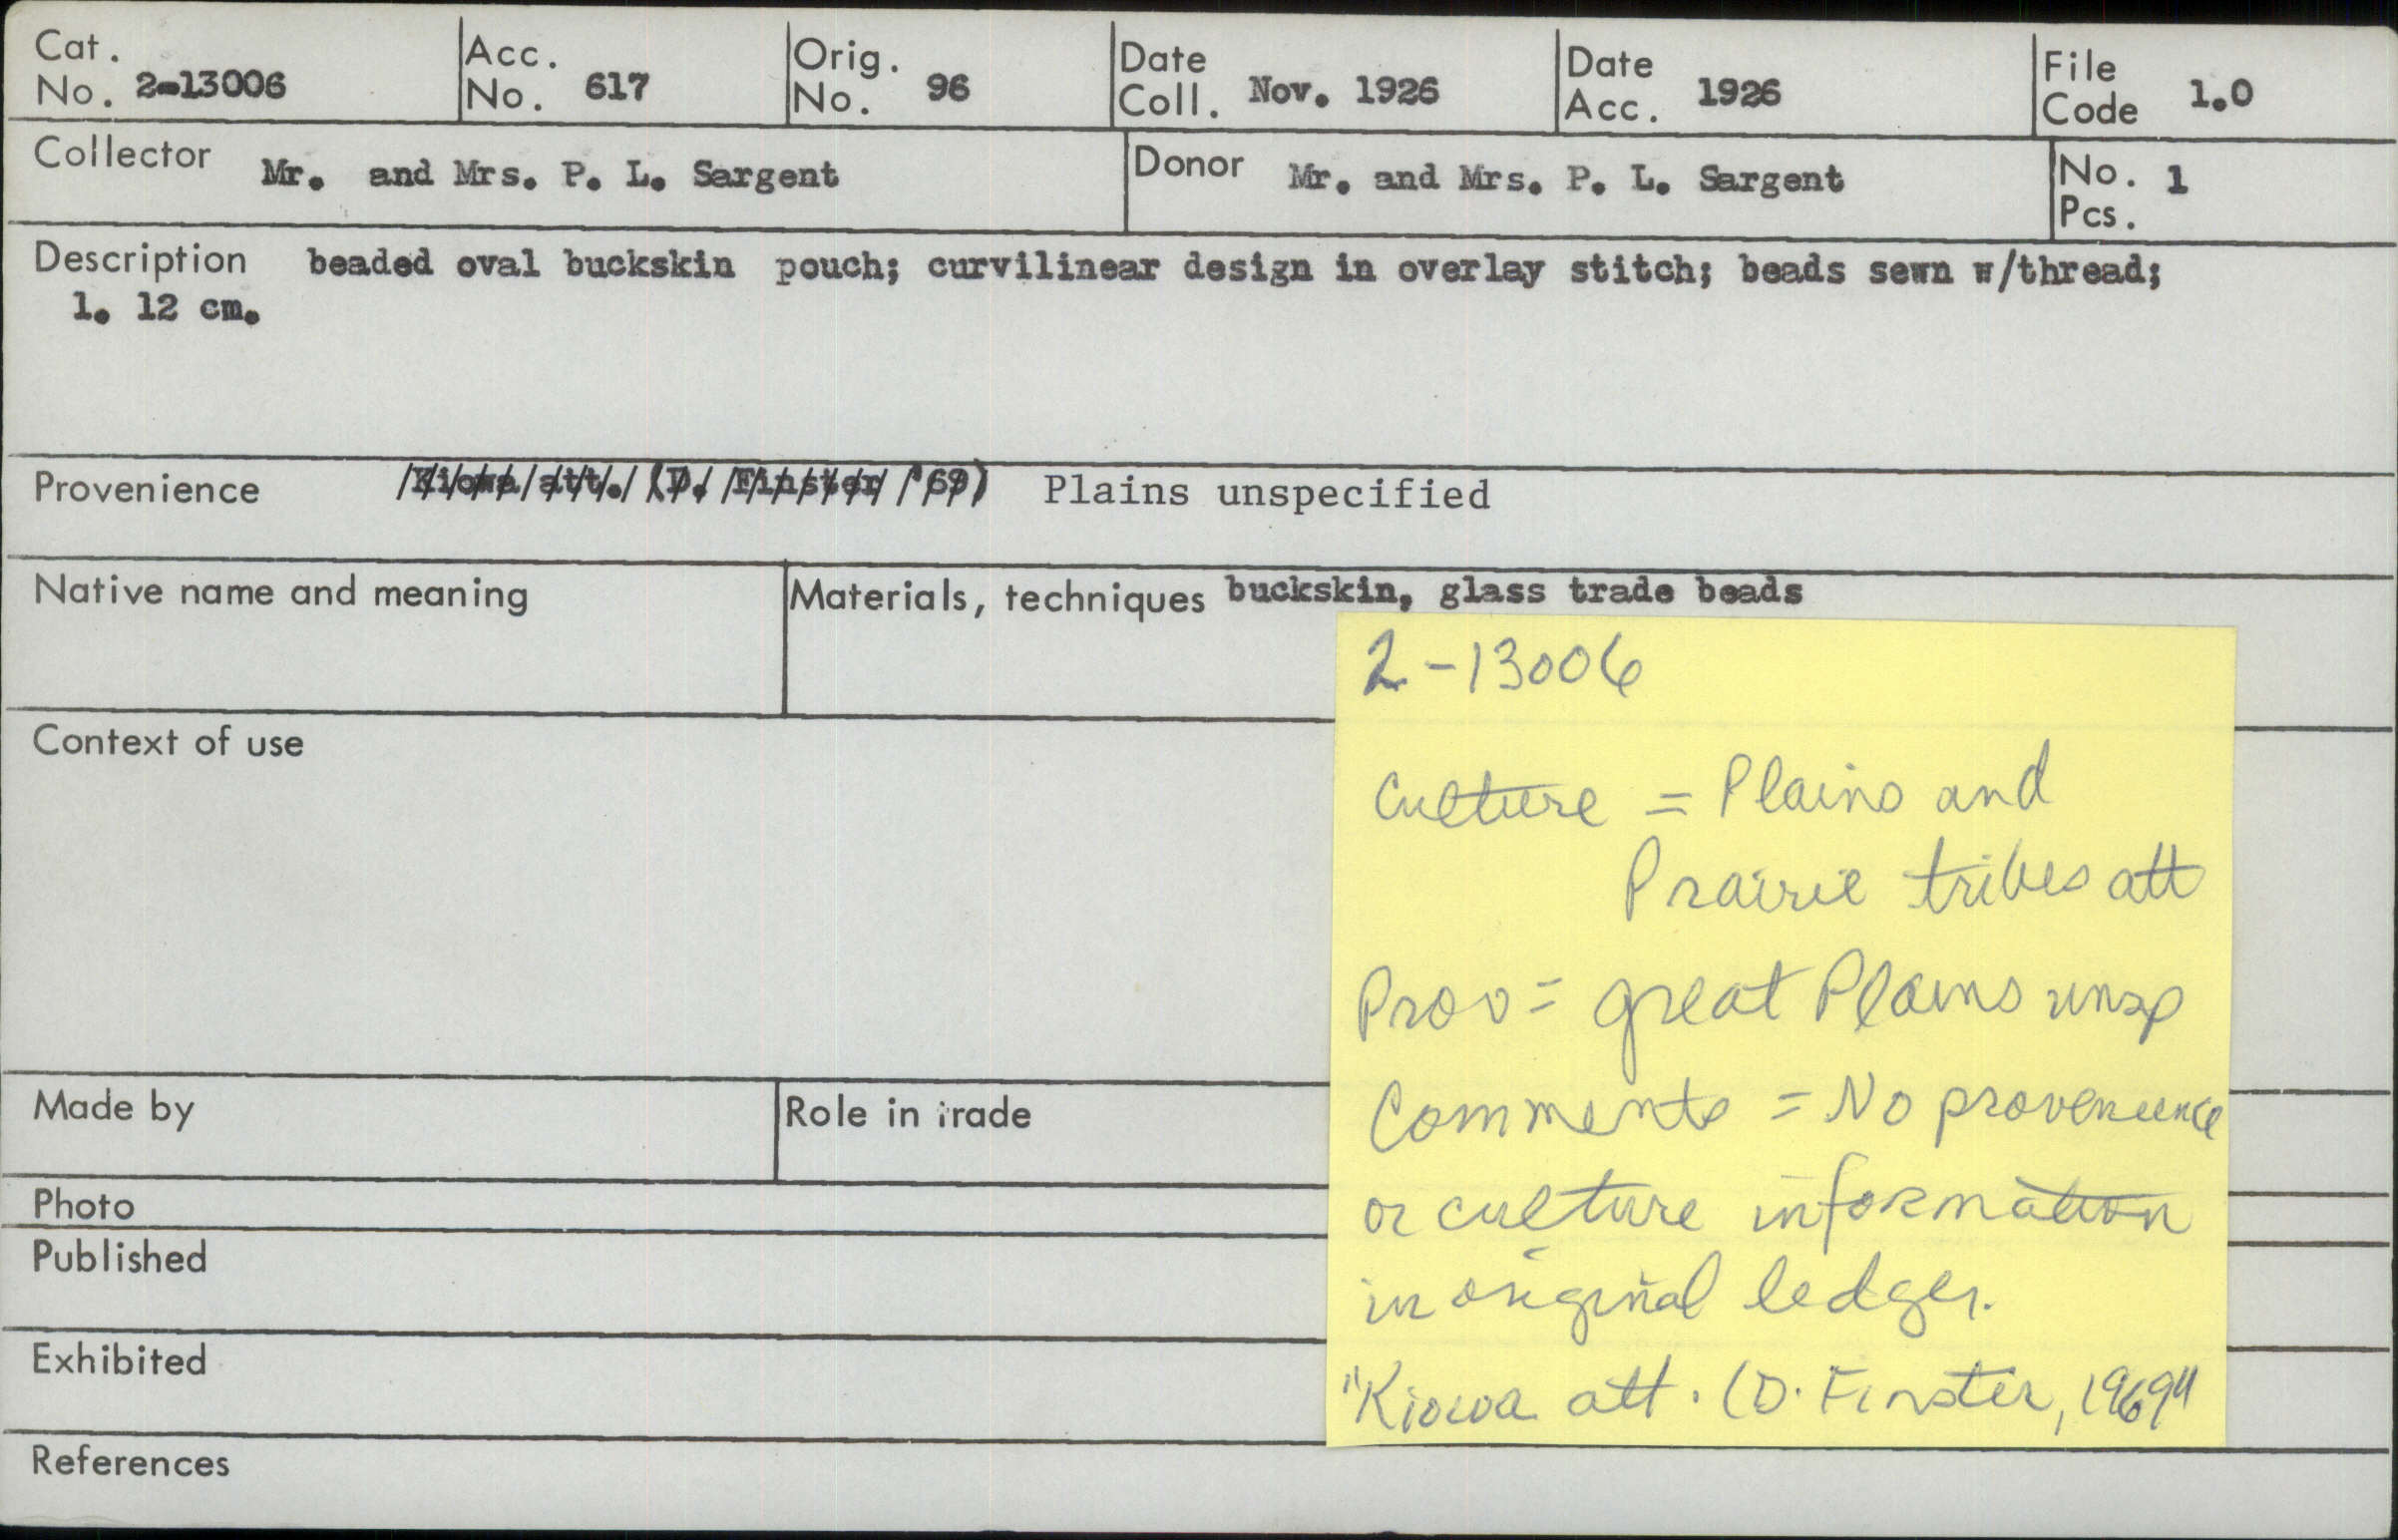 Cat. No. 2-13006
Acc. No. 617
Orig. No. 96
Date Coll. Nov. 1926
Date Acc. 1926
File Code 1.0
Collector Mr. and Mrs. P. L. Sargent
Donor Mr. and Mrs. P. L. Sargent
No. Pcs. 1
Description beaded oval buckskin pouch; curvilinear design in overlay stitch; beads sewn w/thread;
l. 12 cm.
Provenience Kiowa att. (D. Finster '69) Plains unspecified
Native name and meaning
Materials, techniques buckskin, glass trade beads
Context of use
Made by
Role in trade
Photo
Published
Exhibited
References
2-13006
Culture = Plains and
Prairie tribes att
Prov = Great Plains unsp
Comments = No provenience
or culture information
in original ledger.
"Kiowa att. (D. Finster, 1969"